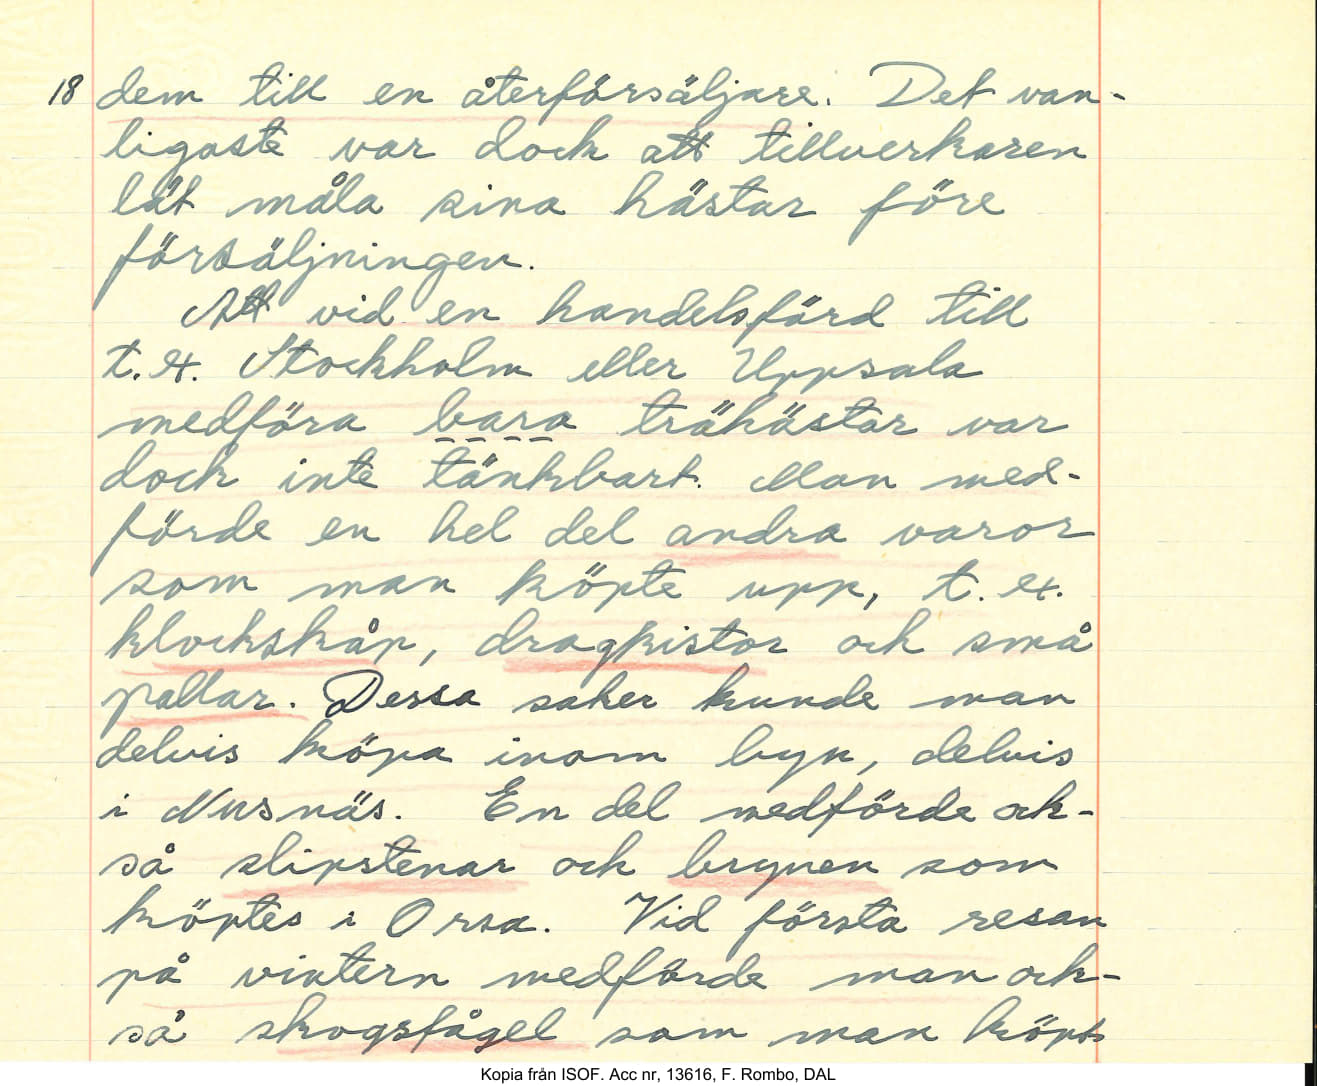 18 dem till en återförsäljare. Det van-
ligaste var dock att tillverkaren
lät måla sina hästar före
försäljningen.
Att vid en handelsfärd till
t.ex. Stockholm eller Uppsala
medföra bara trähästar var
dock inte tänkbart. Man med-
förde en hel del andra varor
som man köpte upp, t.ex.
klockskåp, dragkistor och små
pallar. Dessa saker kunde man
delvis köpa inom byn, delvis
i Nusnäs. En del medförde ock-
så slipstenar och brynen som
köptes i Orsa. Vid första resan
på vintern medförde man ock-
så skogsfågel som man köpt
Kopia från ISOF. Acc nr, 13616, F. Rombo, DAL